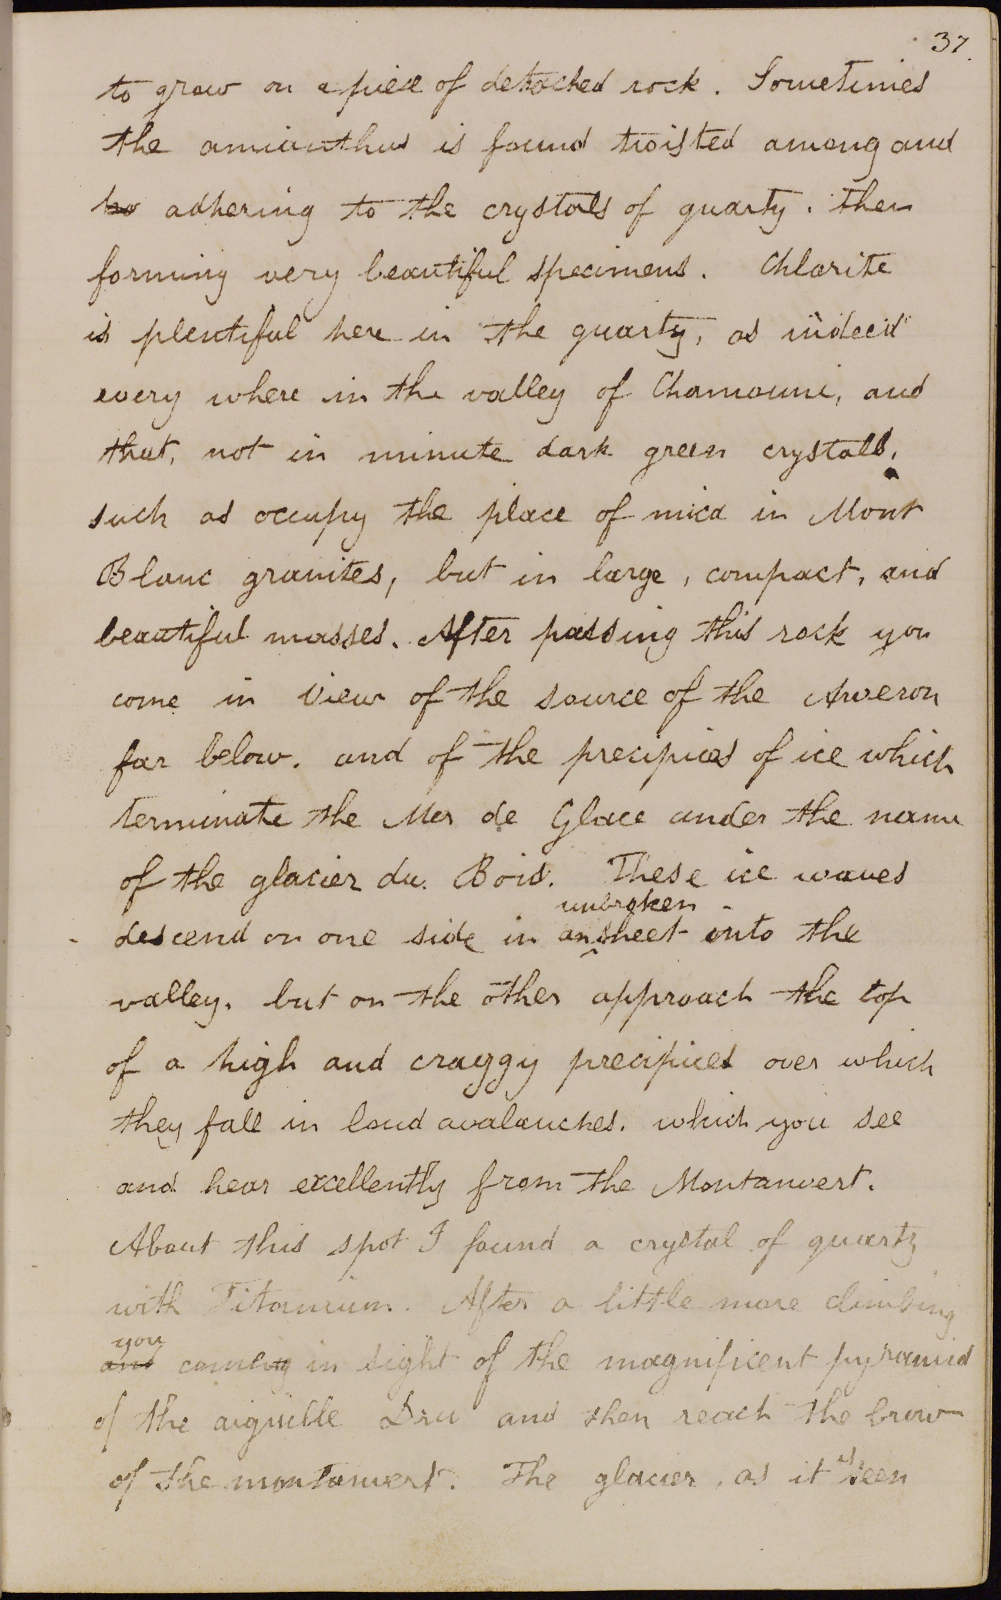 37.
to grow on a piece of detached rock. Sometimes
the amianthus is found twisted among and
adhering to the crystals of quartz. then
forming very beautiful specimens. Chlorite
is plentiful here in the quartz, as indeed
every where in the valley of Chamouni, and
that, not in minute dark green crystals,
such as occupy the place of mica in Mont
Blanc granites, but in large, compact, and
beautiful masses. After passing this rock you
come in view of the source of the Arveron
far below. and of the precipices of ice which
terminate the Mer de Glace under the name
of the glacier du. Bois. These ice waves
unbroken
descend on one side in an sheet onto the
valley. but on the other approach the top
of a high and craggy precipices over which
they fall in loud avalanches. which you see
and hear excellently from the Montanvert.
About this spot I found a crystal of quartz
with Titanium. After a little more climbing
you
and coming in sight of the magnificent pyramid
of the aiguille Dru and then reach the brow
of the montanvert. The glacier, as it is seen